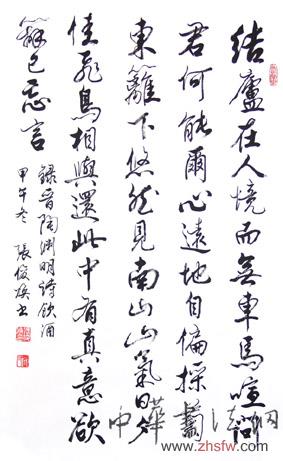 結廬在人境而無車馬喧問
君何能爾心遠地自偏採菊
東籬下悠然見南山山氣日夕
佳飛鳥相與還此中有真意欲
辯已忘言
錄晉陶淵明詩飲酒
甲午冬 張俊煥書
中華書法網
www.zhsfw.com